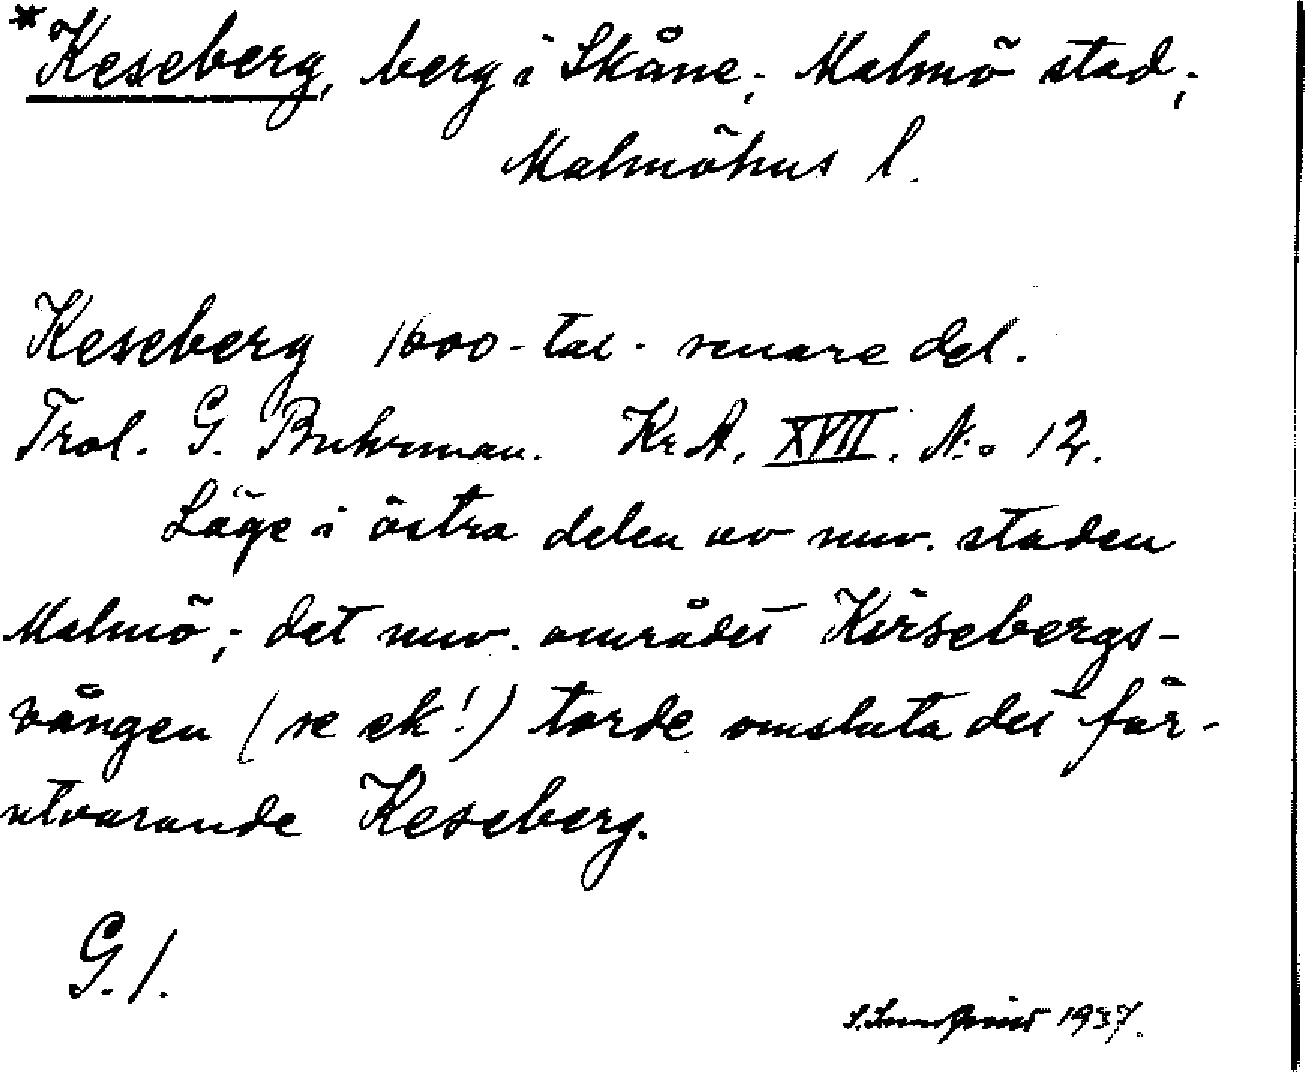 *Keseberg, berg i Skåne; Malmö stad;
Malmöhus l.
Keseberg 1600-tal. senare del.
Trol. G. Buhrman. Kr.A. XVII. N:o 12.
Läge i östra delen av nuv. staden
Malmö; det nuv. området Kirsebergs-
vången (se ek!) torde omsluta det för-
utvarande Keseberg.
G. 1.
1937.